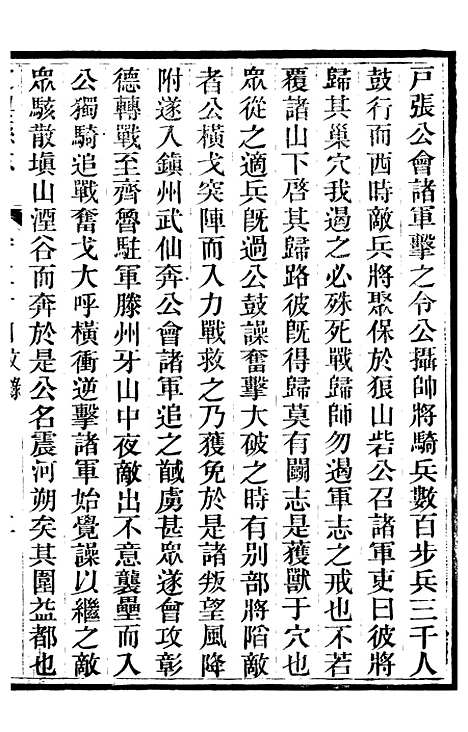 戸張公會諸軍擊之令公攝帥將騎兵數百步兵三千人
鼓行而西時敵兵將聚保於狼山砦公召諸軍吏曰彼將
歸其巢穴我遏之必殊死戰歸師勿遏軍志之戒也不若
覆諸山下啓其歸路彼旣得歸莫有鬬志是獲獸于穴也
眾從之適兵旣過公鼓譟奮擊大破之時有别部將陷敵
者公橫戈突陣而入力戰救之乃獲免於是諸叛望風降
附遂入鎭州武仙奔公會諸軍追之馘虜甚眾遂會攻彰
德轉戰至齊魯駐軍滕州牙山中夜敵出不意襲壘而入
公獨騎追戰奮戈大呼橫衝逆擊諸軍始覺譟以繼之敵
眾駭散塡山湮谷而奔於是公名震河朔矣其圍益都也